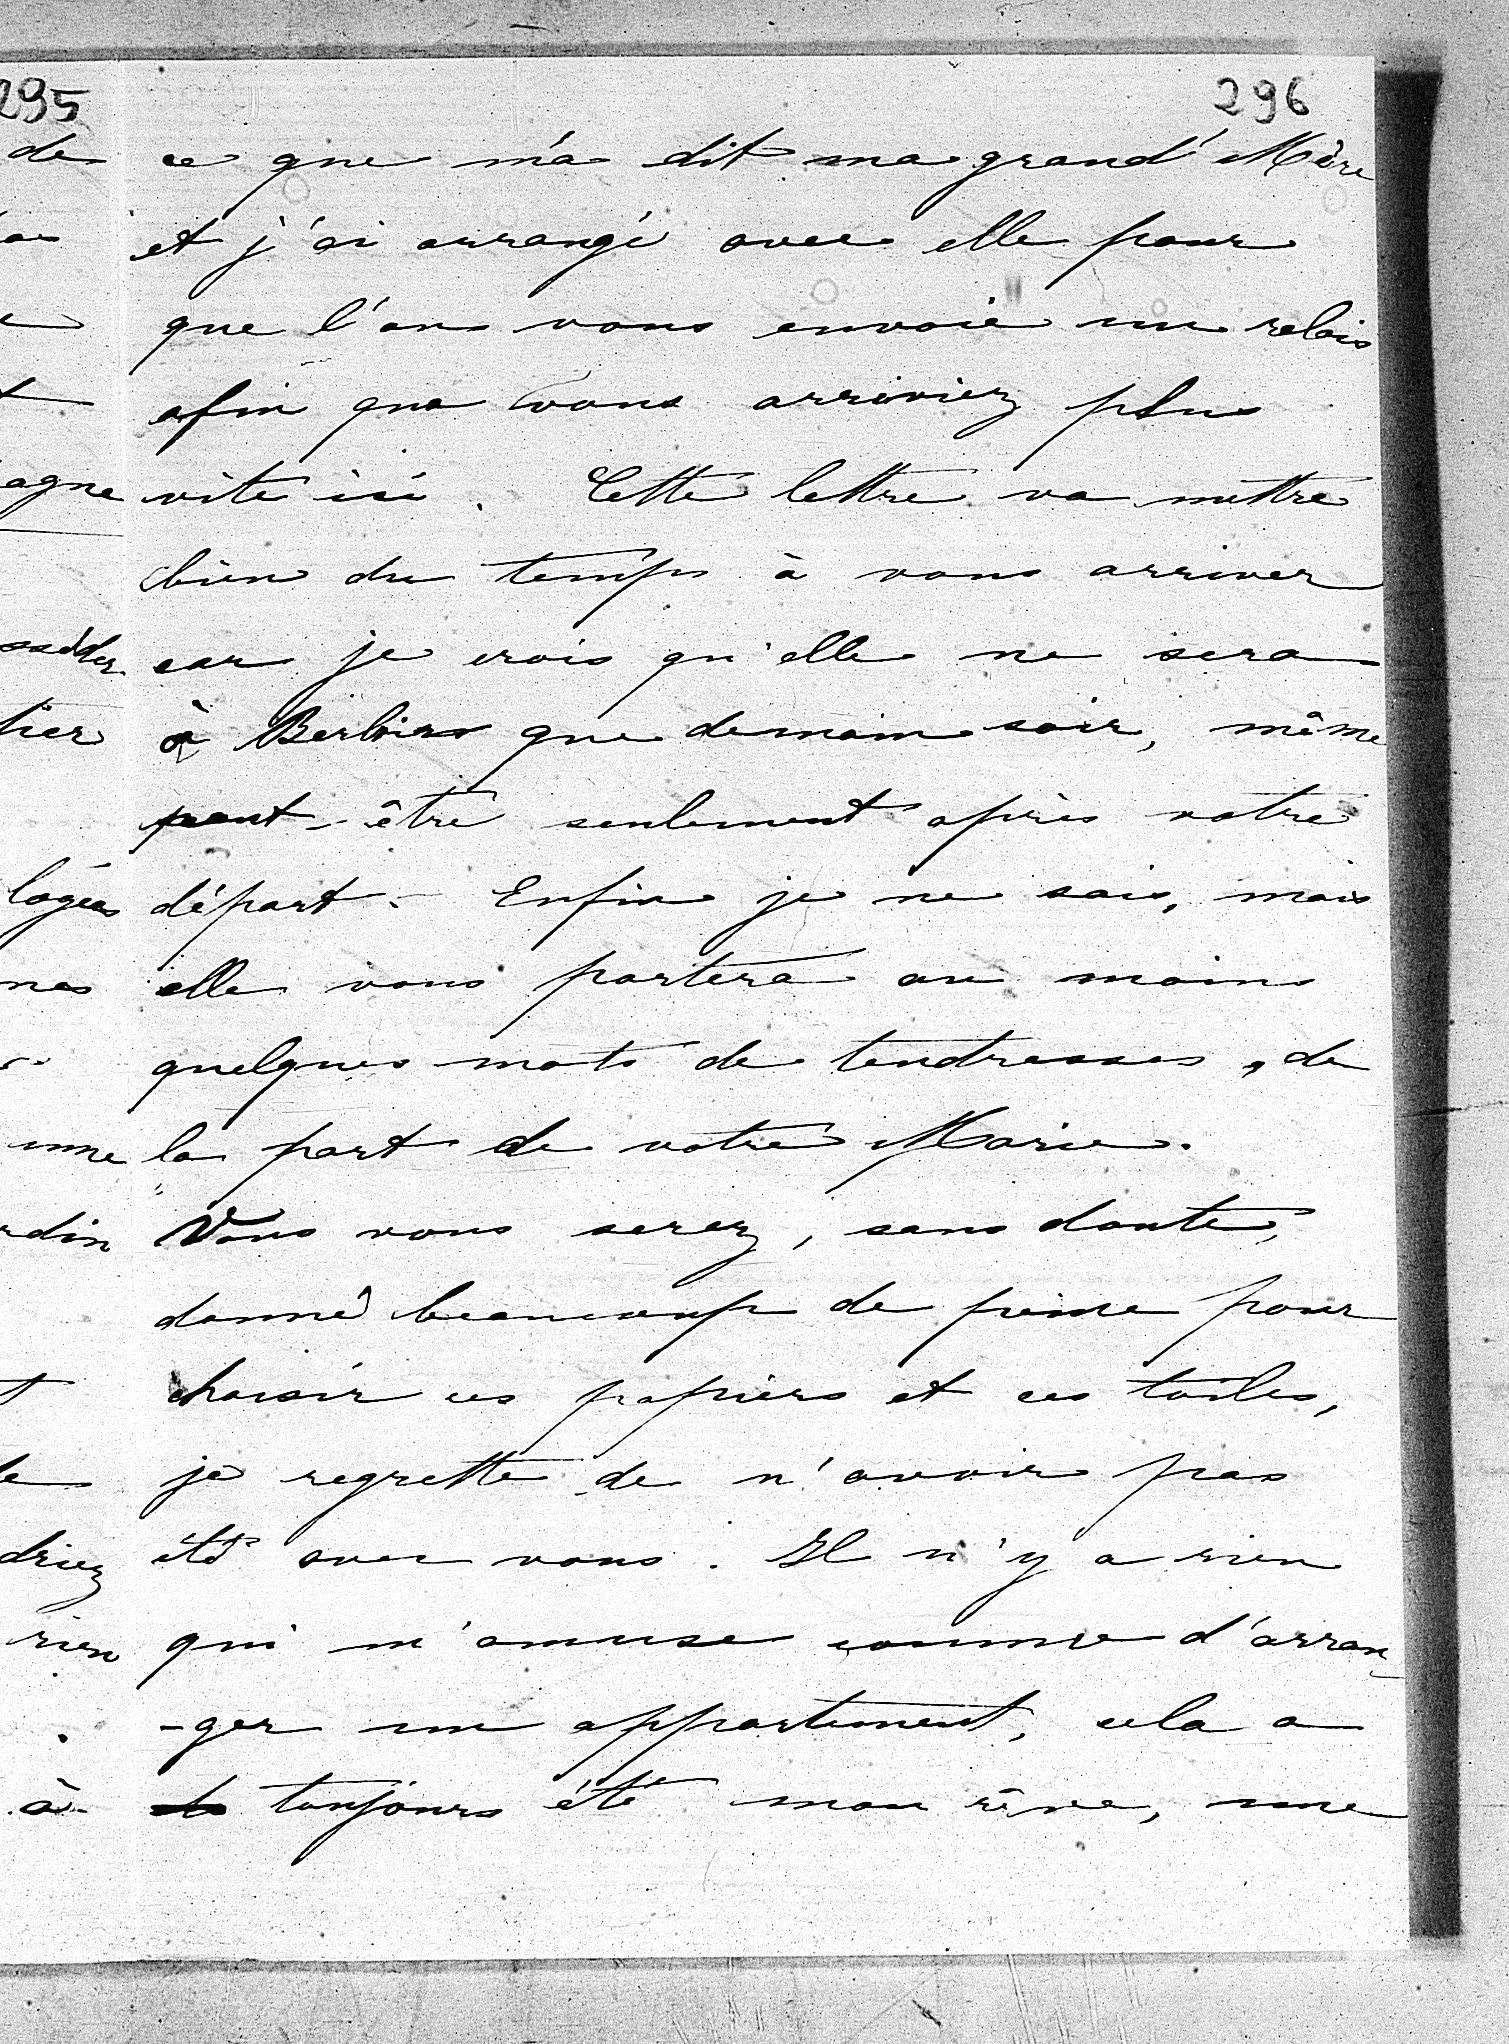 295
296
de
ce que m'a dit ma grand'Mère
et j'ai arrangé avec elle pour
que l'on vous envoie un relais
afin que vous arriviez plus
agne
vite ici. Cette lettre va mettre
bien du temps à vous arriver
sséder
car je crois qu'elle ne sera
tier
à que demain soir, même
peut-être seulement après votre
logées
départ. Enfin je ne sais, mais
nes
elle vous portera au moins
quelques mots de tendresses, de
une
la part de votre Marie.
rdin
Vous vous serez, sans doute,
donné beaucoup de peine pour
choisir ces papiers et ces toiles,
je regrette de n'avoir pas
driez
été avec vous. Il n'y a rien
rien
qui m'amuse comme d'arran-
-ger un appartement, cela a
à
toujours été mon rêve, une